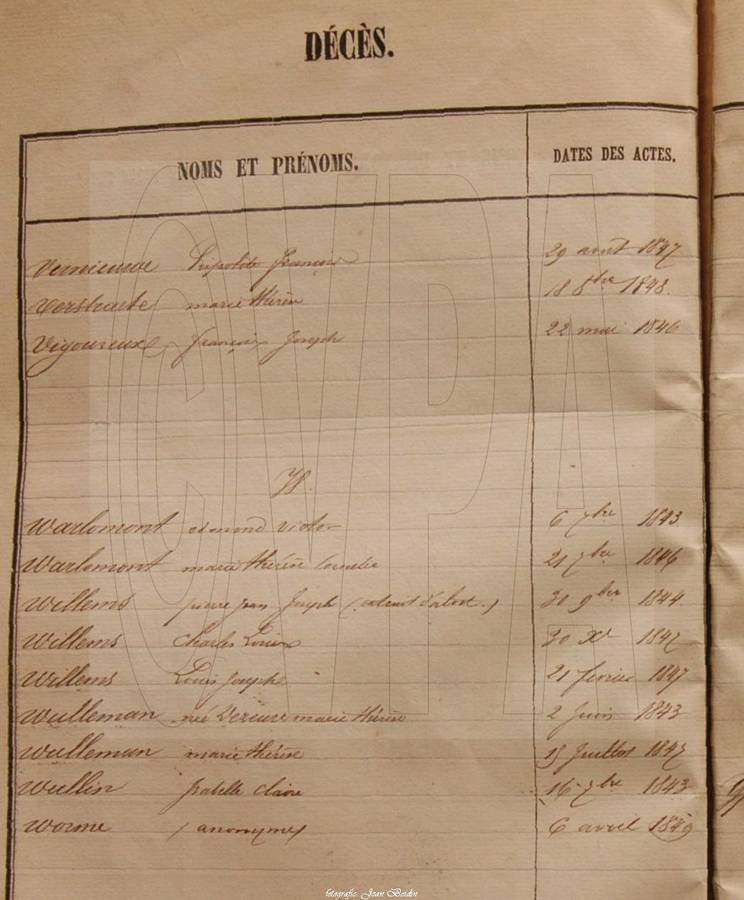 DÉCÈS.
NOMS ET PRÉNOMS. DATES DES ACTES.
françois 29 août 1847
marie thérèse 18 8bre 1843.
Vigoureux françois Joseph 22 mai 1846
W.
Warlomont edmond victor 6 7bre 1843
Warlomont marie thérèse Cornelie 21 7bre 1846
Willems pierre Jean Joseph (extrait d'alost.) 30 9bre 1844
Willems Charles Louis 30 Xbre 1847
Willems Louis Joseph 21 fevrier 1847
Wulleman née marie thérèse 2 Juin 1843
Wulleman marie thérèse 15 Juillet 1847
Wullin Isabelle Claire 16 7bre 1843
Worme (anonyme) 6 avril 1849
CVPA
fotografie: Jean Baidin